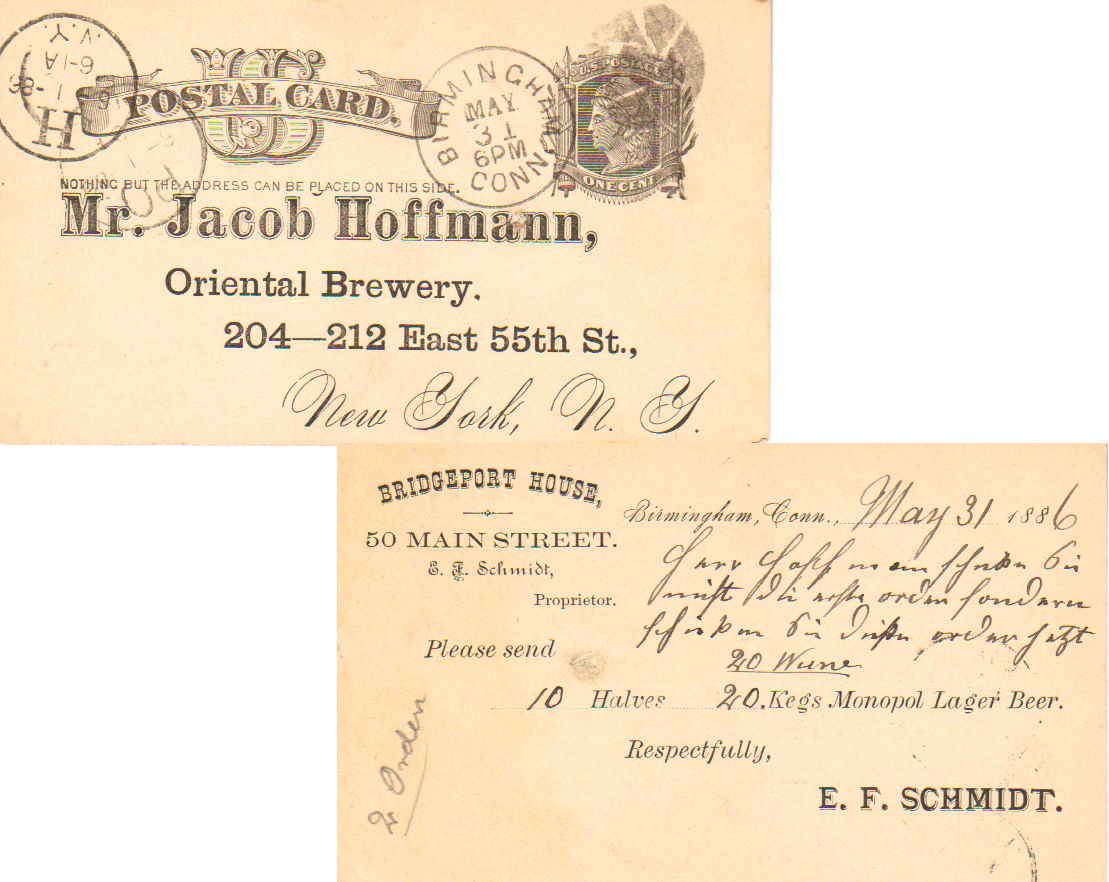 POSTAL CARD.
U.S. POSTAGE
ONE CENT
BIRMINGHAM CONN.
MAY
31
6PM
H
6-1A
N.Y.
NOTHING BUT THE ADDRESS CAN BE PLACED ON THIS SIDE.
Mr. Jacob Hoffmann,
Oriental Brewery.
204—212 East 55th St.,
New York, N. Y.
BRIDGEPORT HOUSE,
50 MAIN STREET.
E. F. Schmidt,
Proprietor.
Birmingham, Conn., May 31 1886
Herr Hoffmann schicken Sie
nicht die erste order sondern
schicken Sie diese order jetzt
20 Wiene
Please send
10 Halves 20. Kegs Monopol Lager Beer.
Respectfully,
E. F. SCHMIDT.
2 Orden